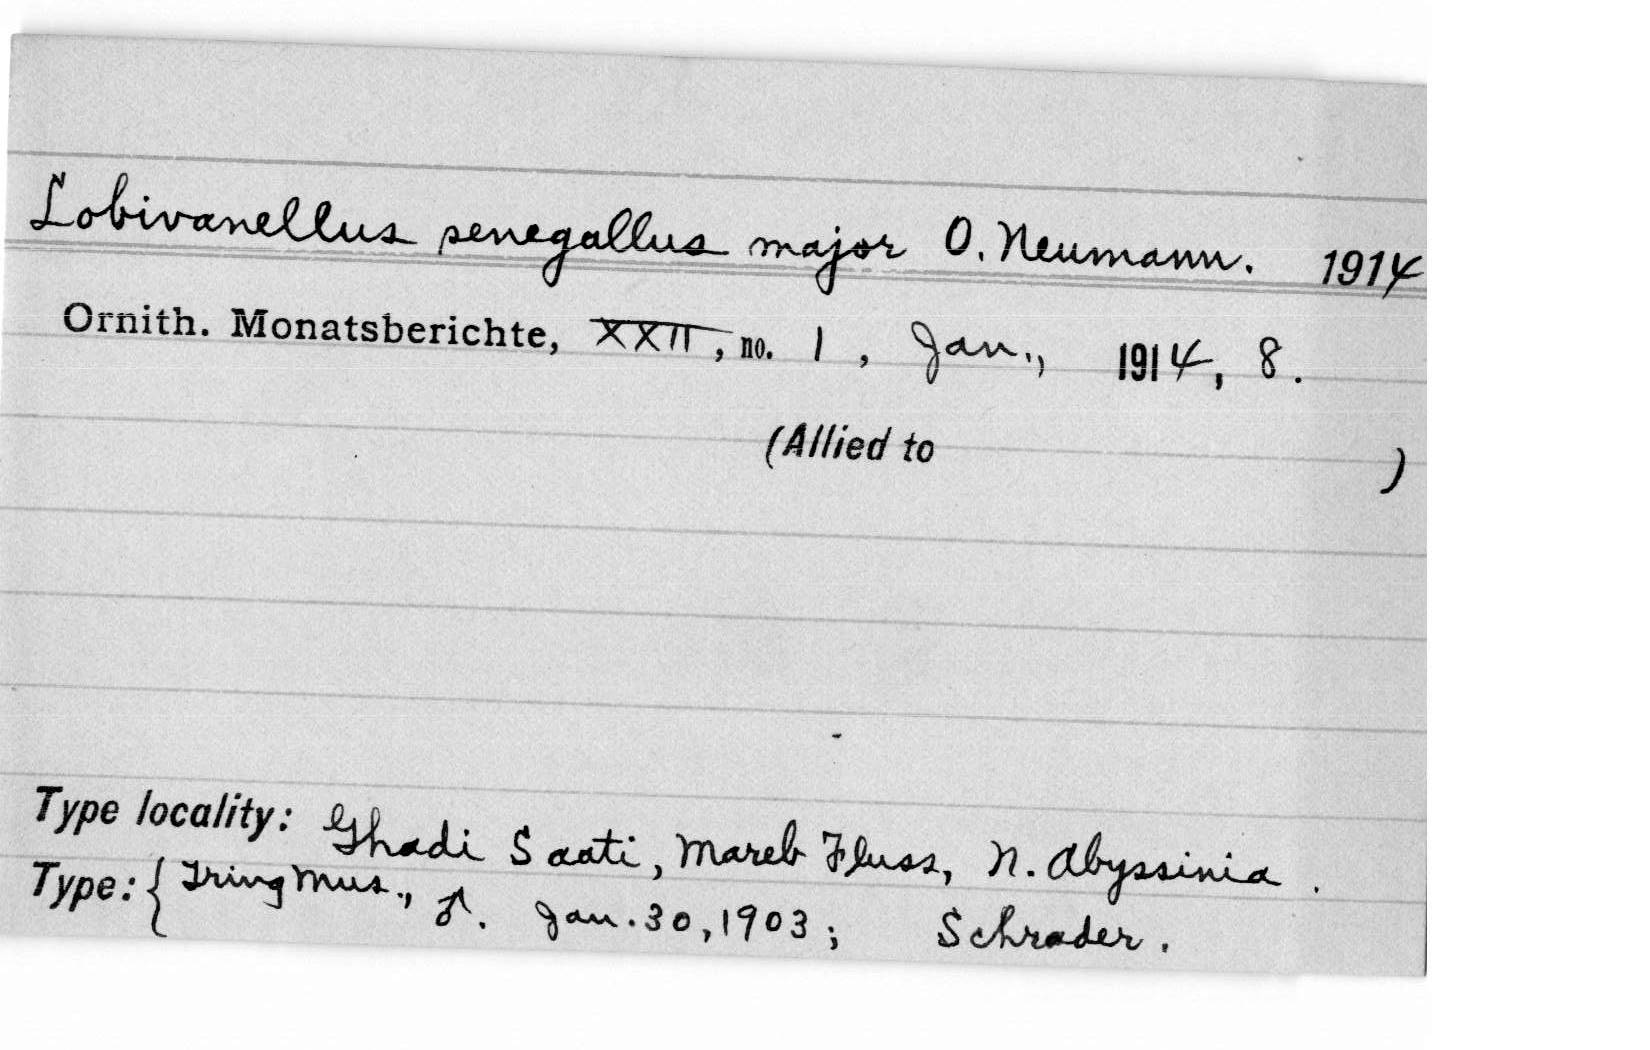 Lobivanellus senegallus major O. Neumann. 1914
Ornith. Monatsberichte, XXII, no. 1, Jan., 1914, 8.
(Allied to )
Type locality: Ghadi Saati, Mareb Fluss, N. Abyssinia.
Type: { Tring Mus., ♂. Jan. 30, 1903; Schrader.